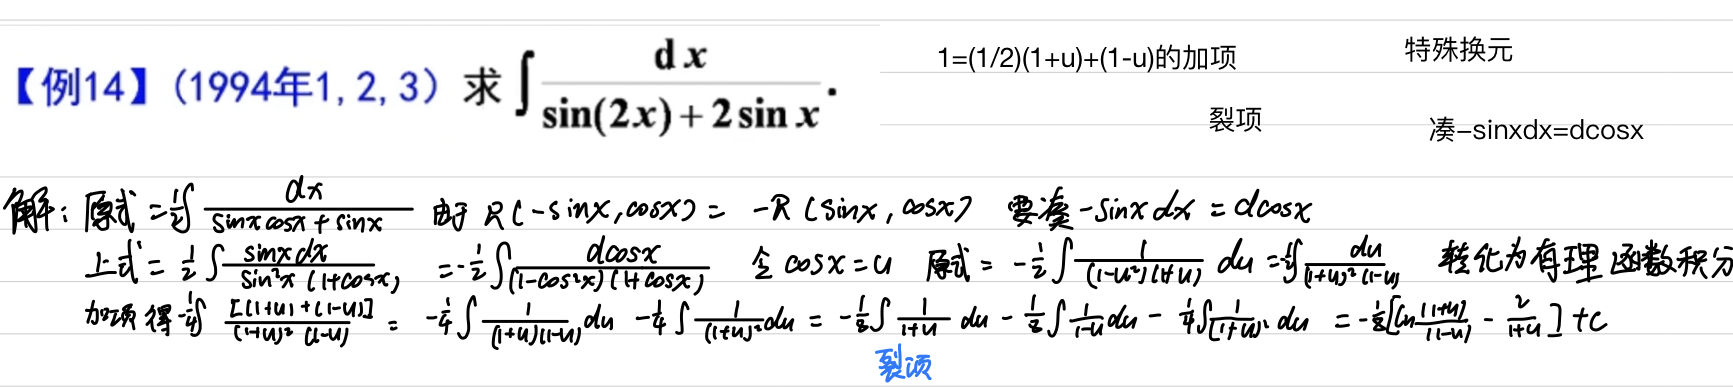 【例14】(1994年1,2,3) 求 ∫ dx / (sin(2x)+2sin x).
1=(1/2)(1+u)+(1-u)的加项
特殊换元
裂项
凑-sinxdx=dcosx
解: 原式 = 1/2 ∫ dx / (sinx cosx + sinx) 由于 R(-sinx, cosx) = -R(sinx, cosx) 要凑 -sinx dx = dcosx
上式 = 1/2 ∫ sinx dx / (sin²x (1+cosx)) = -1/2 ∫ dcosx / ((1-cos²x)(1+cosx)) 令 cosx = u 原式 = -1/2 ∫ 1 / ((1-u²)(1+u)) du = -1/2 ∫ du / ((1+u)²(1-u)) 转化为有理函数积分
加项得 -1/4 ∫ [(1+u)+(1-u)] / ((1+u)²(1-u)) = -1/4 ∫ 1 / ((1+u)(1-u)) du - 1/4 ∫ 1 / (1+u)² du = -1/8 ∫ 1 / (1+u) du - 1/8 ∫ 1 / (1-u) du - 1/4 ∫ 1 / (1+u)² du = -1/8 [ln |1+u| / |1-u| - 2 / (1+u)] + C
裂项